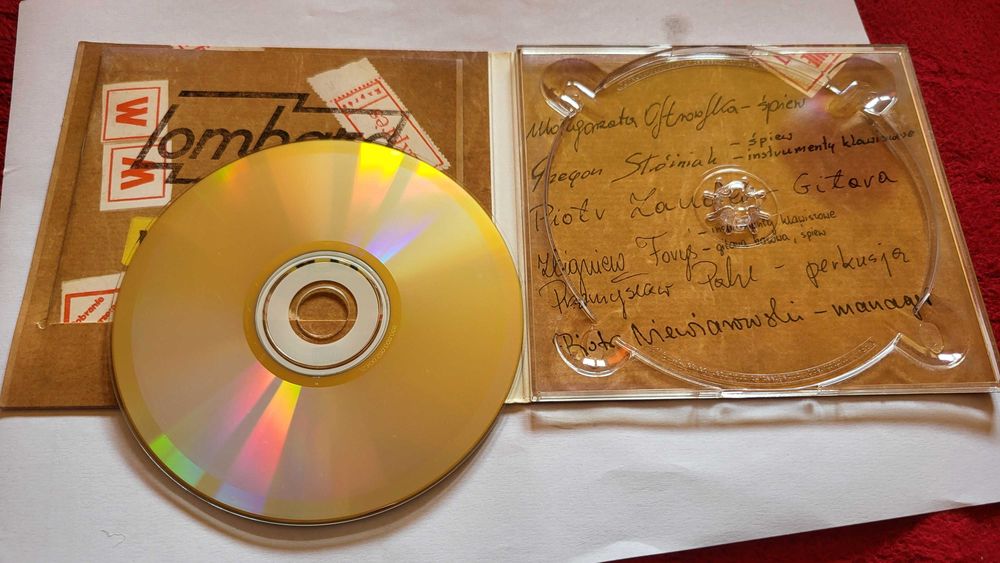 W
W
lombard
Małgorzata Ostrowska - śpiew
Grzegorz Stróżniak - śpiew
- instrumenty klawiszowe
Piotr Zander - Gitara
- instrumenty klawiszowe
Zbigniew Foryś - gitara basowa, śpiew
Przemysław Pahl - perkusja
Piotr Niewiarowski - manager